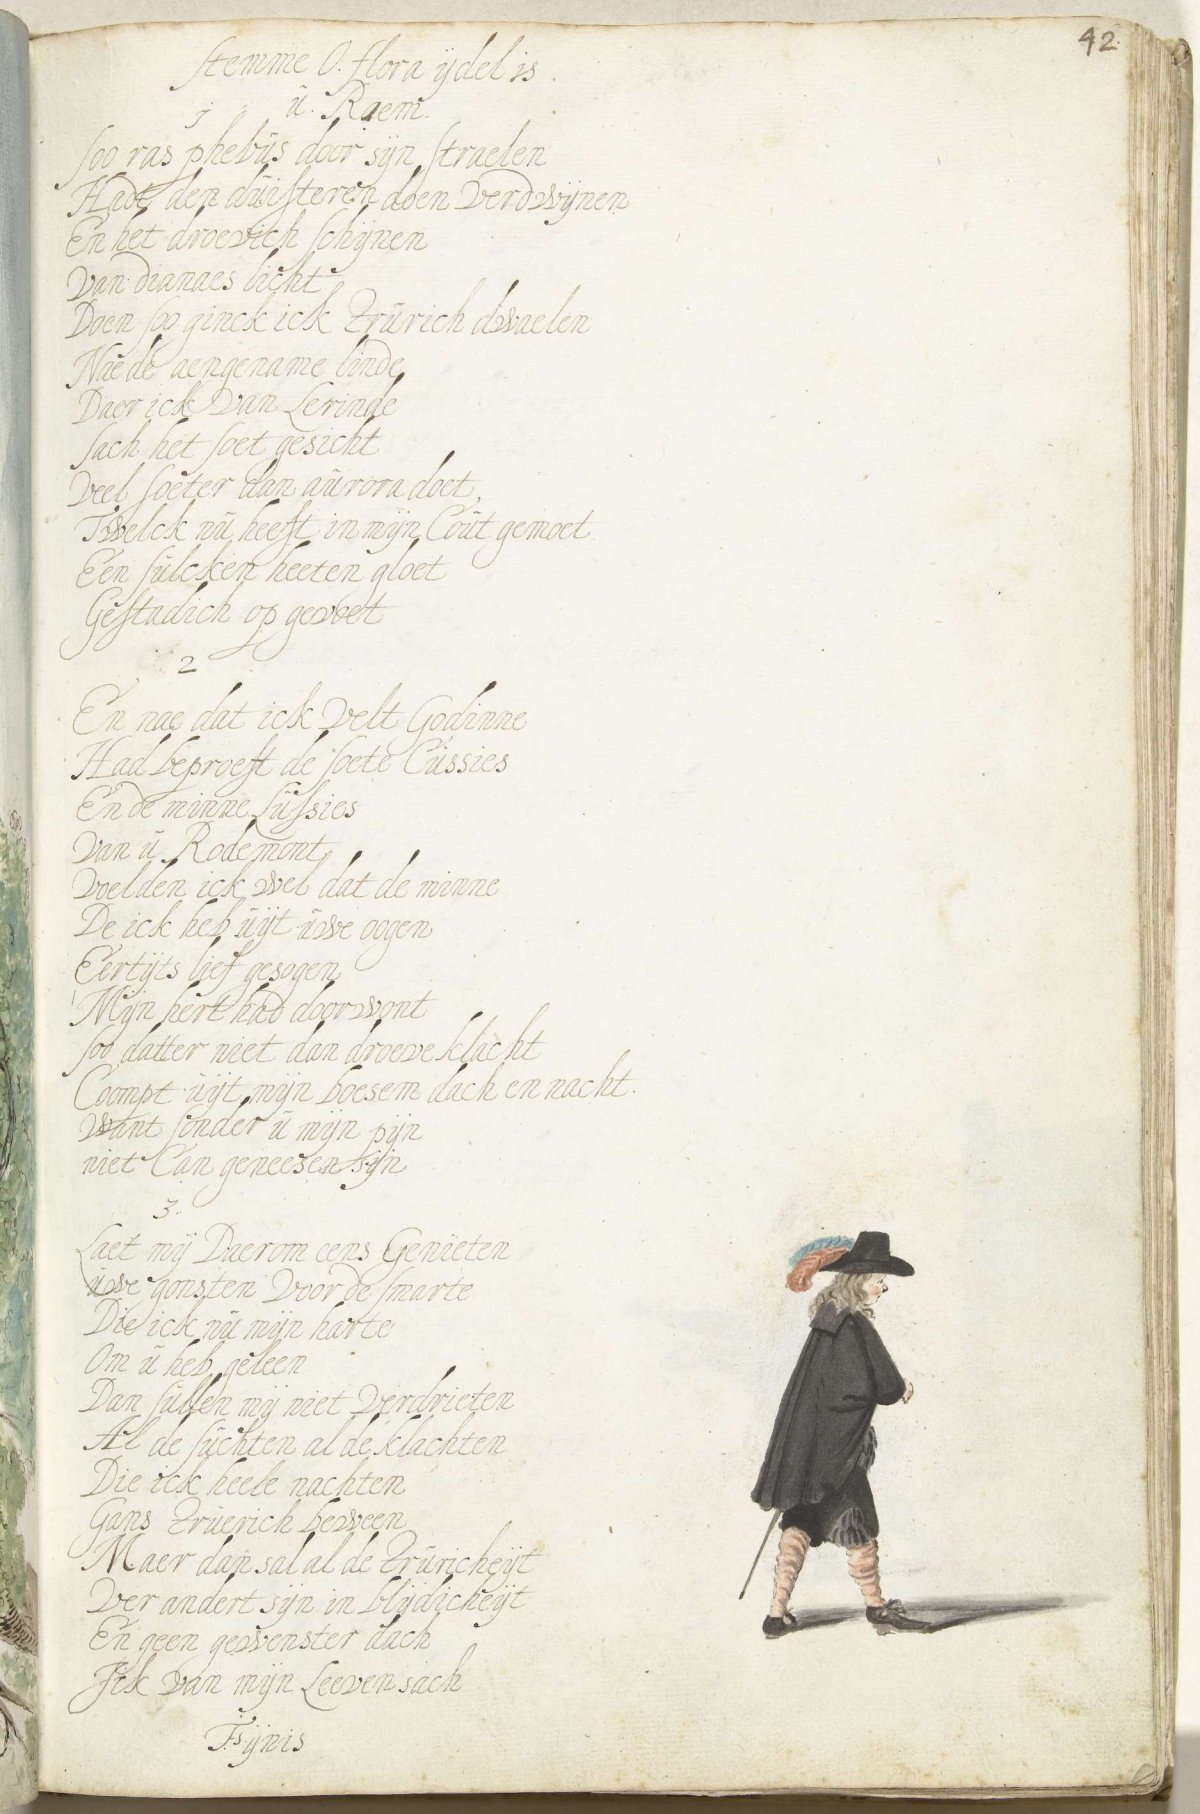 42
Stemme O. flora ydel is
ü. Raem.
1
soo ras phebüs door sijn straelen
Hadt den düisteren doen Verdwijnen
En het droevich schijnen
Van dianaes licht
Doen soo ginck ick Trürich dwaelen
Nae de aengename linde
Daer ick Van Lerinde
sach het soet gesicht
Veel soeter dan aürora doet
Twelck nü heeft in mijn Coüt gemoet
Een sülcken heeten gloet
Gestadich op gevoet
2
En nae dat ick Velt Godinne
Had beproeft de soete Cüssies
En de minne Lüssies
Van ü Rodemont
Voelden ick wel dat de minne
De ick heb üijt üwe oogen
Eertijts lief gesogen
Mijn hert had doorwont
soo datter niet dan droeve klacht
Coompt üijt mijn boesem dach en nacht.
Want sonder ü mijn pijn
niet Can geneesen sijn
3.
Laet mij Daerom eens Genieten
üwe gonsten Voor de smarte
Die ick nü mijn harte
Om ü heb geleen
Dan süllen mij niet Verdrieten
Al de süchten al de klachten
Die ick heele nachten
Gans Trüerich beween
Maer dan sal al de Trüricheijt
Ver andert sijn in blijdicheijt
En geen gewenster dach
Ick van mijn Leeven sach
Fijnis